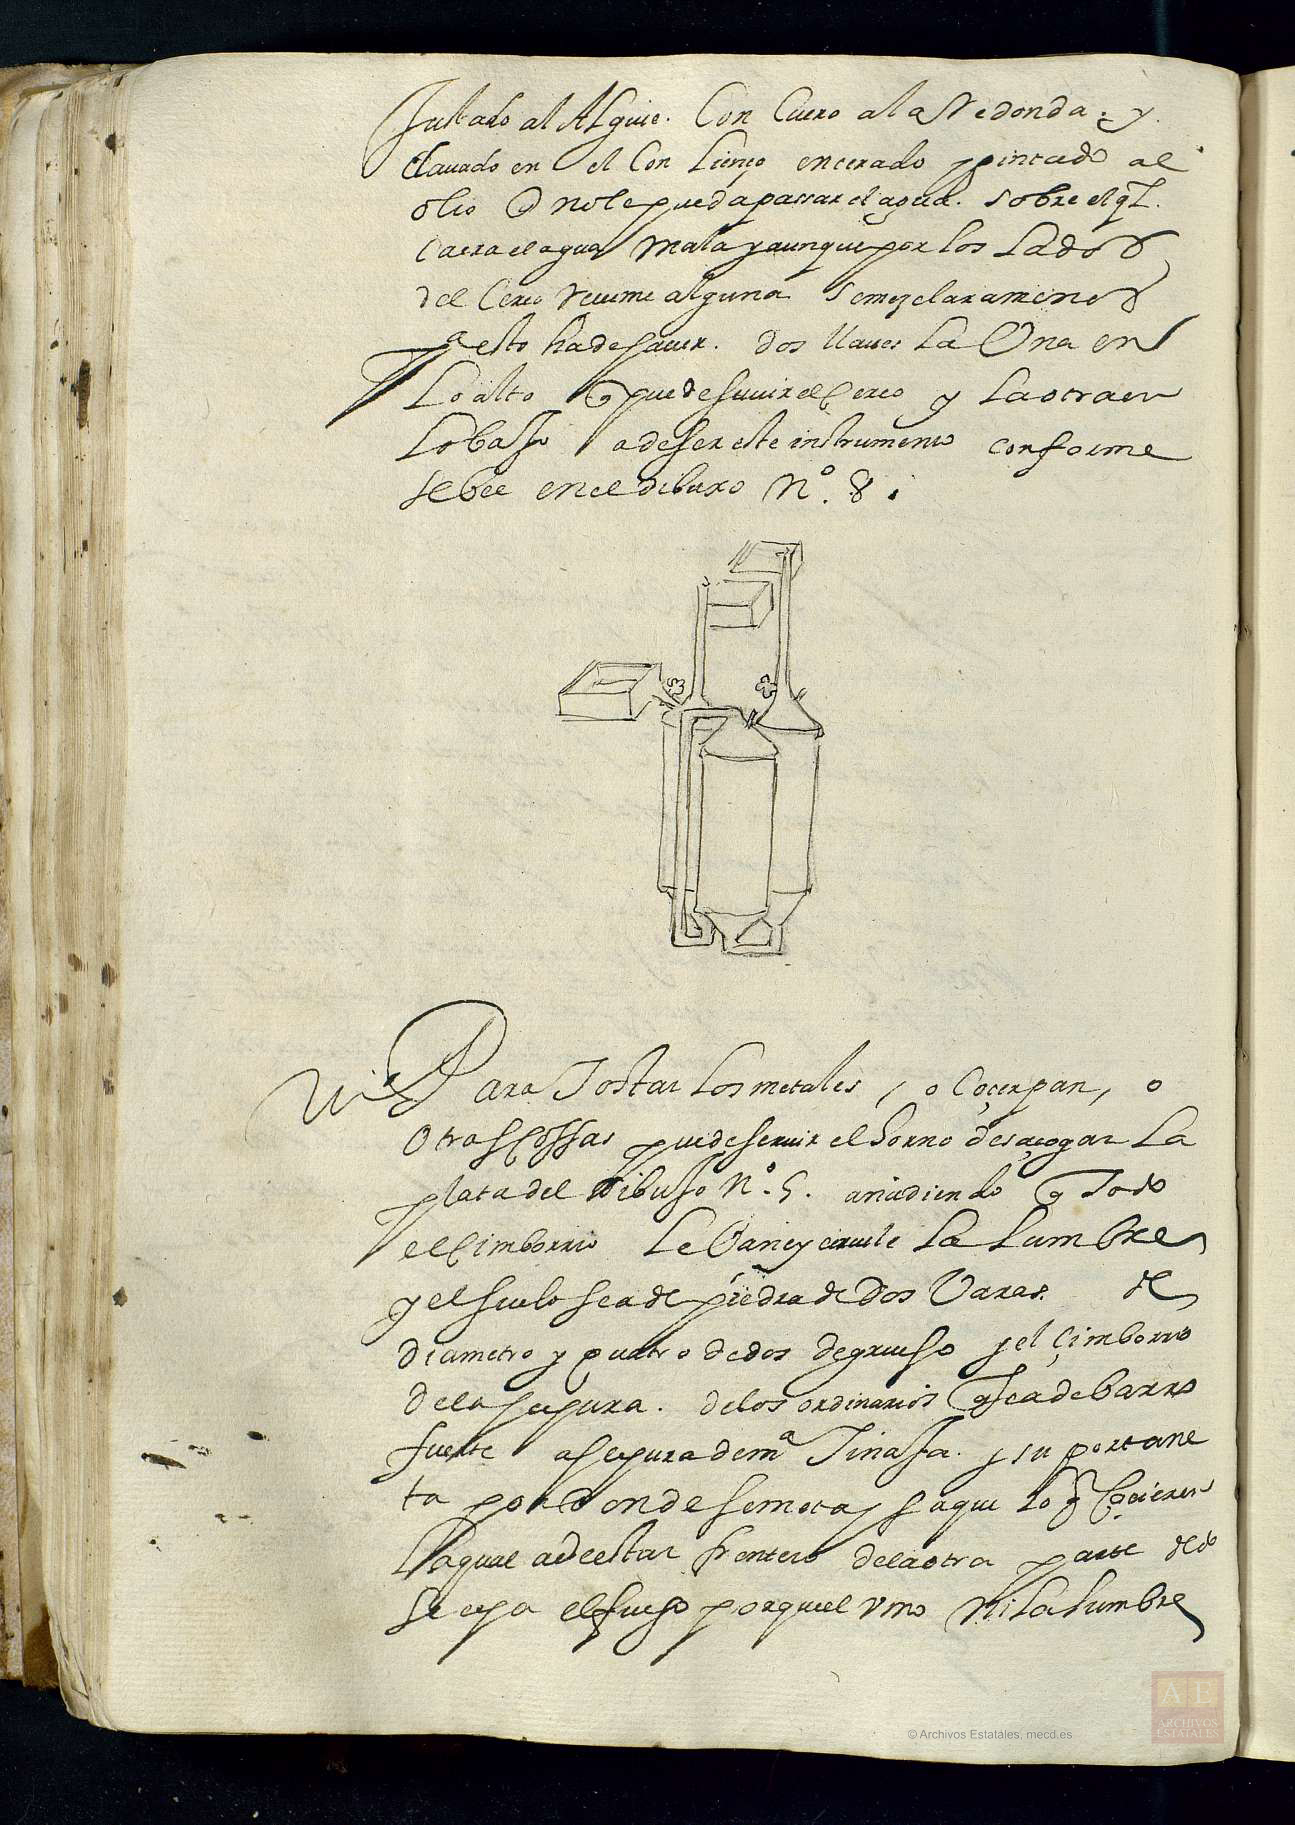 Justado al Alguie. Con Cuero al a Redonda. y
Clauado en el Con Lienço encerado y pintado al
olio q̃ no le pueda passar el agua. sobre el ql.
Caera el agua mala y aunque por los Lados
del Cerco Reçume alguna se mezclara menos
pa esto ha de hauer. dos llaues La Vna en
Lo alto q̃ puede seruir el Cerco y La otra en
Lo baso a de ser este instrumento conforme
se bee en el dibuxo No. 8.
Para Tostar Los metales, o Coçer pan, o
Otras Cossas puede seruir el horno desaçogar La
plata del dibusso No. 5. añadiendo q̃ todo
el Cimborrio Le Vañe y circule La Lumbre
y el suelo sea de piedra de Dos Varas. de
diametro y quatro dedos de grueso y el çimborrio
de la hechura. de los ordinarios q̃ sea de barro
fuerte a hechura de ma Tinaja. y su portane
ta por donde se meta y saque Lo q̃ Coçieren
La qual a de estar frontero de la otra parte do
se ceua el fuego porque el vmo Ni La Lumbre
© Archivos Estatales, mecd.es
AE
ARCHIVOS
ESTATALES